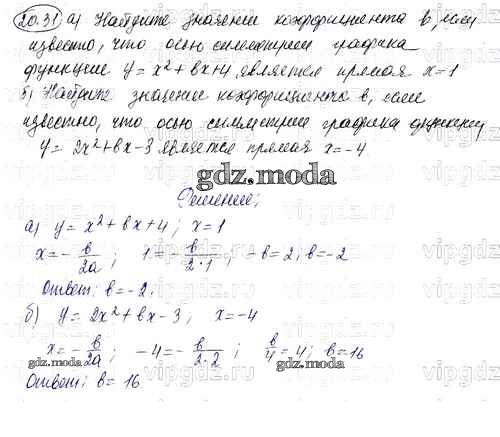 20.31 а) Найдите значение коэффициента b, если
известно, что осью симметрии графика
функции y = x² + bx + 4 является прямая x = 1
б) Найдите значение коэффициента b, если
известно, что осью симметрии графика функции
y = 2x² + bx - 3 является прямая x = -4
gdz.moda
Решение;
а) y = x² + bx + 4; x = 1
x = - b/2a; 1 = - b/2·1; -b = 2; b = -2
Ответ: b = -2.
б) y = 2x² + bx - 3; x = -4
x = - b/2a; -4 = - b/2·2; b/4 = 4; b = 16
gdz.moda gdz.moda
Ответ: b = 16
vipgdz